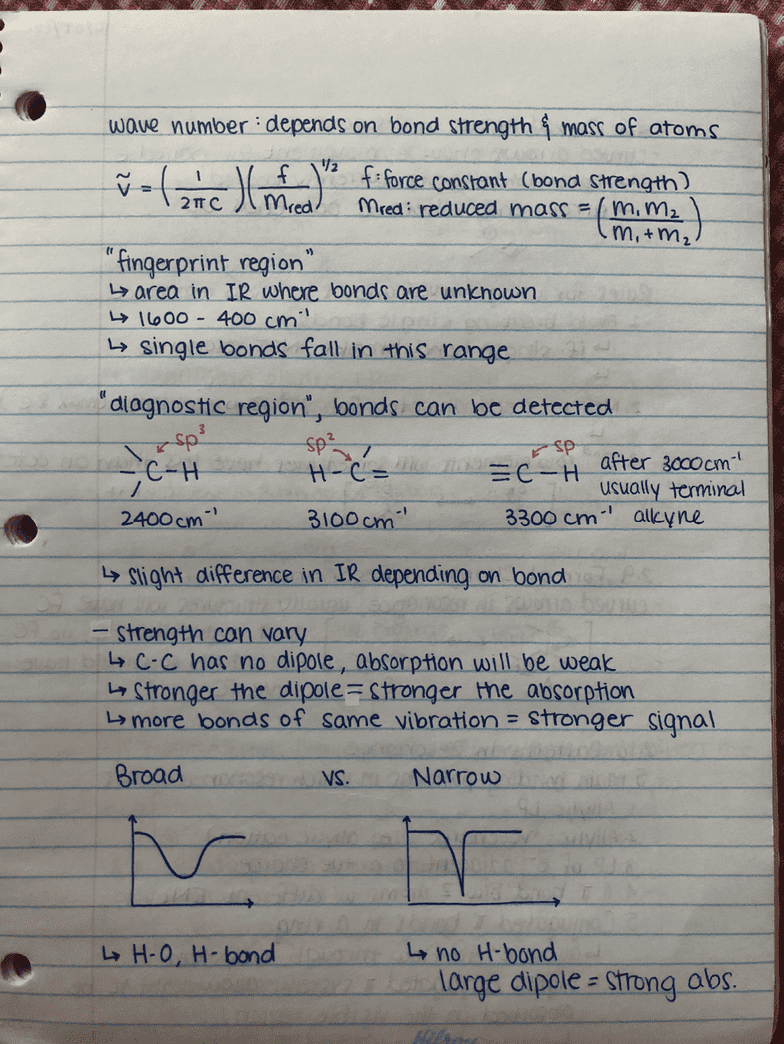 wave number: depends on bond strength & mass of atoms
ṽ = (1/2πc)(f/Mred)^1/2 f: force constant (bond strength)
Mred: reduced mass = (m1m2/m1+m2)
"fingerprint region"
↳ area in IR where bonds are unknown
↳ 1600 - 400 cm⁻¹
↳ single bonds fall in this range
"diagnostic region", bonds can be detected
sp³ sp² sp
C-H H-C= ≡C-H after 3000cm⁻¹
usually terminal
2400cm⁻¹ 3100cm⁻¹ 3300cm⁻¹ alkyne
↳ slight difference in IR depending on bond
- strength can vary
↳ C-C has no dipole, absorption will be weak
↳ stronger the dipole = stronger the absorption
↳ more bonds of same vibration = stronger signal
Broad vs. Narrow
↳ H-O, H-bond ↳ no H-bond
large dipole = strong abs.